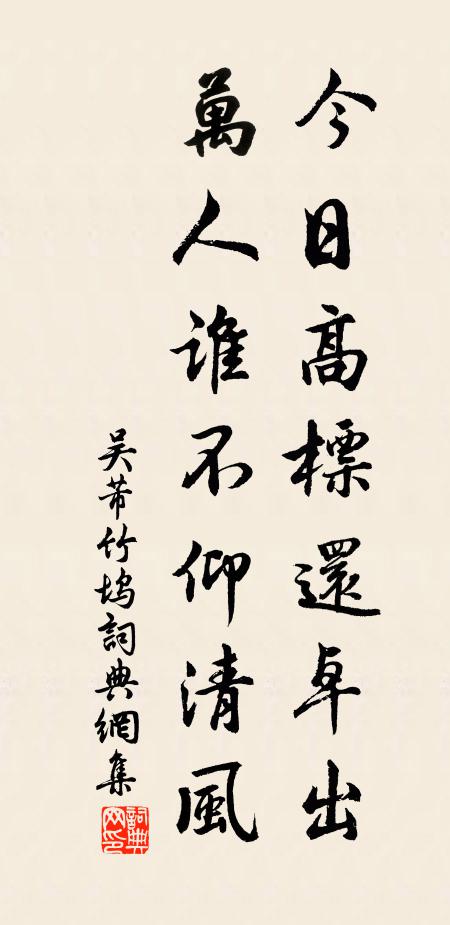 今日高標還卓出
萬人誰不仰清風
吴芾竹塢詞典網集
詞典
网印